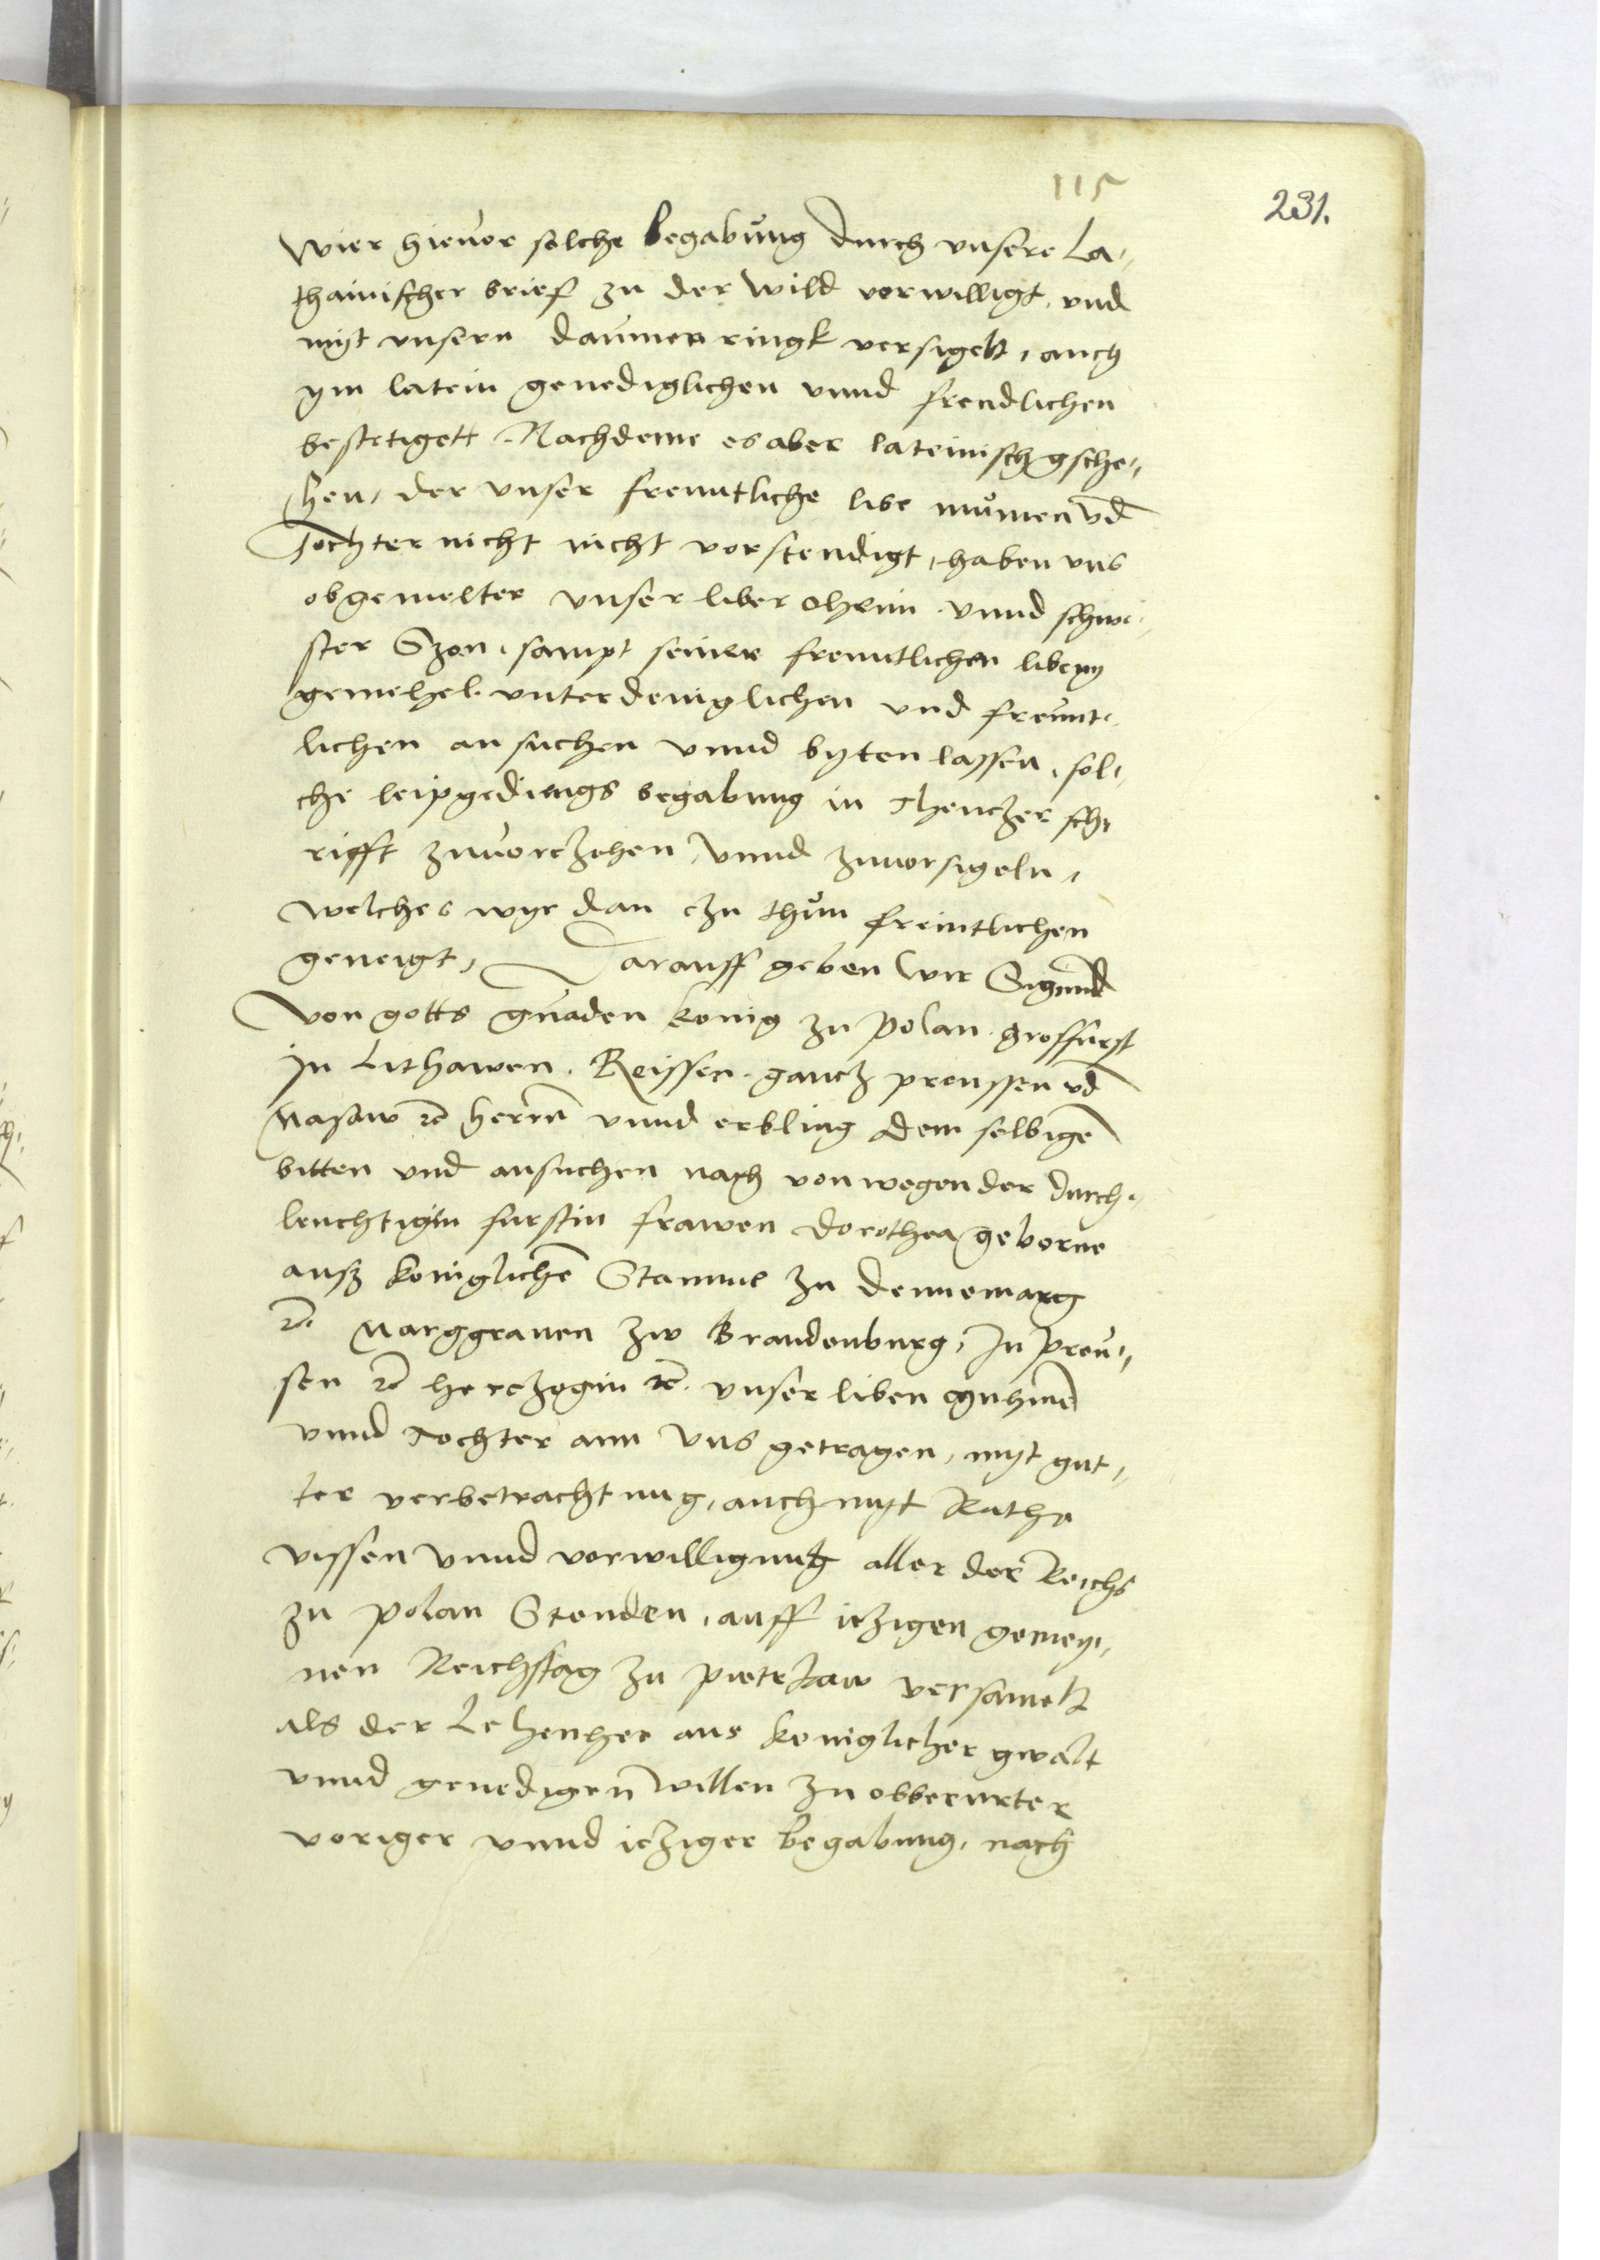 115
231.
Wier hieuor solche begabung durch vnsere La-
thainischer brief zu der Wild vorwilligt, vnd
myt vnsern daumen ringk versigelt, auch
ym latein genediglichen vnnd frendlichen
bestetigett. Nachdeme es aber lateinisch gsche-
hen, der vnser freuntliche libe mumen vnd
Tochter nicht nicht vorstendigt, haben vns
obgemelter vnser liber oheim vnnd schwe-
ster Szon, sampt seiner freuntlichen libenn
gemehel vnterdeniglichen vnd freunt-
lichen an suchen vnnd byten lassen, sol-
che leipgedings begabung in Theuczer sch-
rifft zuuorczehen, vnnd zuuorsigeln,
welches wye dan czu thun freintlichen
geneigt, Darauff geben wir Sigmund
Von gotts gnaden konig zu Polan, grosfurst
In Lithawen, Reissen, gancz preussen vnd
Masaw rc herrn vnnd erbling dem selbigen
bitten vnd ansuchen nach von wegen der durch-
leuchtigin furstin frawen dorothea geborne
ausz koniglichen Stamme zu dennemarg
rc. Marggrauen zw Brandenburg, In preu-
sen rc herczogin rc. vnser liben Muhmen
vnnd Tochter ann Vns getragen, myt gut-
ter verbetrachtung, auch myt Rathe
vissen vnnd vorwilligung aller der Reichs
zu polan Stenden, auff iczigen gemey-
nen Reichstag zu pietrkaw versamelt
als der Lehenher aus koniglicher gwalt
vnnd genedigen willen zu obberurter
voriger vnnd icziger begabung, nach